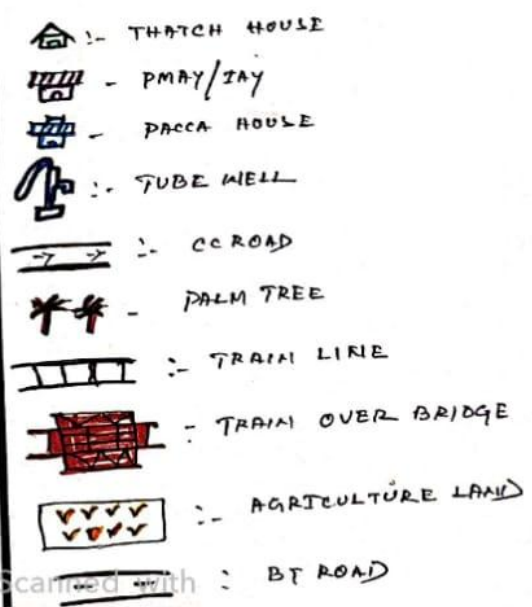 :- THATCH HOUSE
- PMAY/IAY
- PACCA HOUSE
:- TUBE WELL
:- CC ROAD
- PALM TREE
:- TRAIN LINE
:- TRAIN OVER BRIDGE
:- AGRICULTURE LAND
: BT ROAD
Scanned with